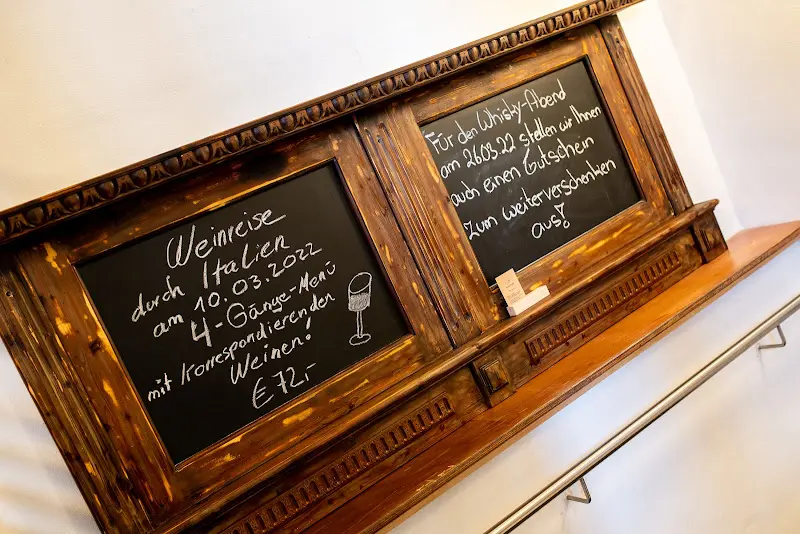 Weinreise
durch Italien
am 10.03.2022
4-Gänge-Menü
mit korrespondierenden
Weinen!
€ 72,-
Für den Whisky-Abend
am 26.03.22 stellen wir Ihnen
auch einen Gutschein
zum weiterverschenken
aus!